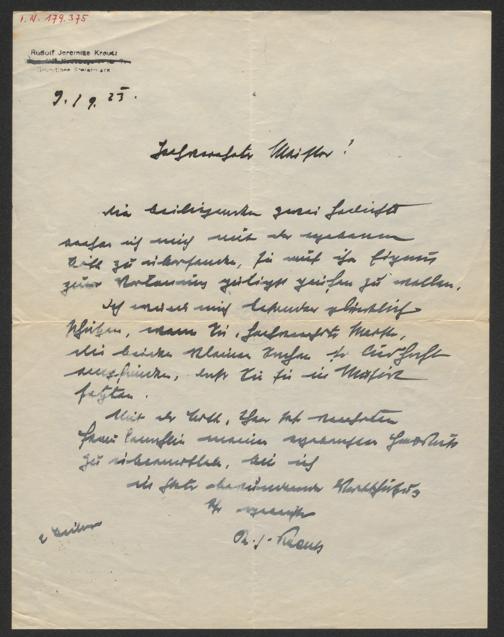 I.N. 179.375
Rudolf Jeremias Kreutz
9./9. 25.
Hochverehrter Meister!
die beiliegenden zwei Gedichte
ich mich mit der ergebenen
Bitte zu übersenden, sie auf ihre Eignung
zur Vertonung gütigst prüfen zu wollen.
Ich würde mich besonders glücklich
schätzen, wenn Sie, hochverehrter Meister,
die beiden kleinen Sachen so
daß Sie sie in Musik
setzten.
Mit der Bitte, Ihrer sehr verehrten
Frau Gemahlin meine ergebensten Handküsse
zu übermitteln, bin ich
in stets Wertschätzung
Ihr ergebenster
R. J. Kreutz
2 Beilagen